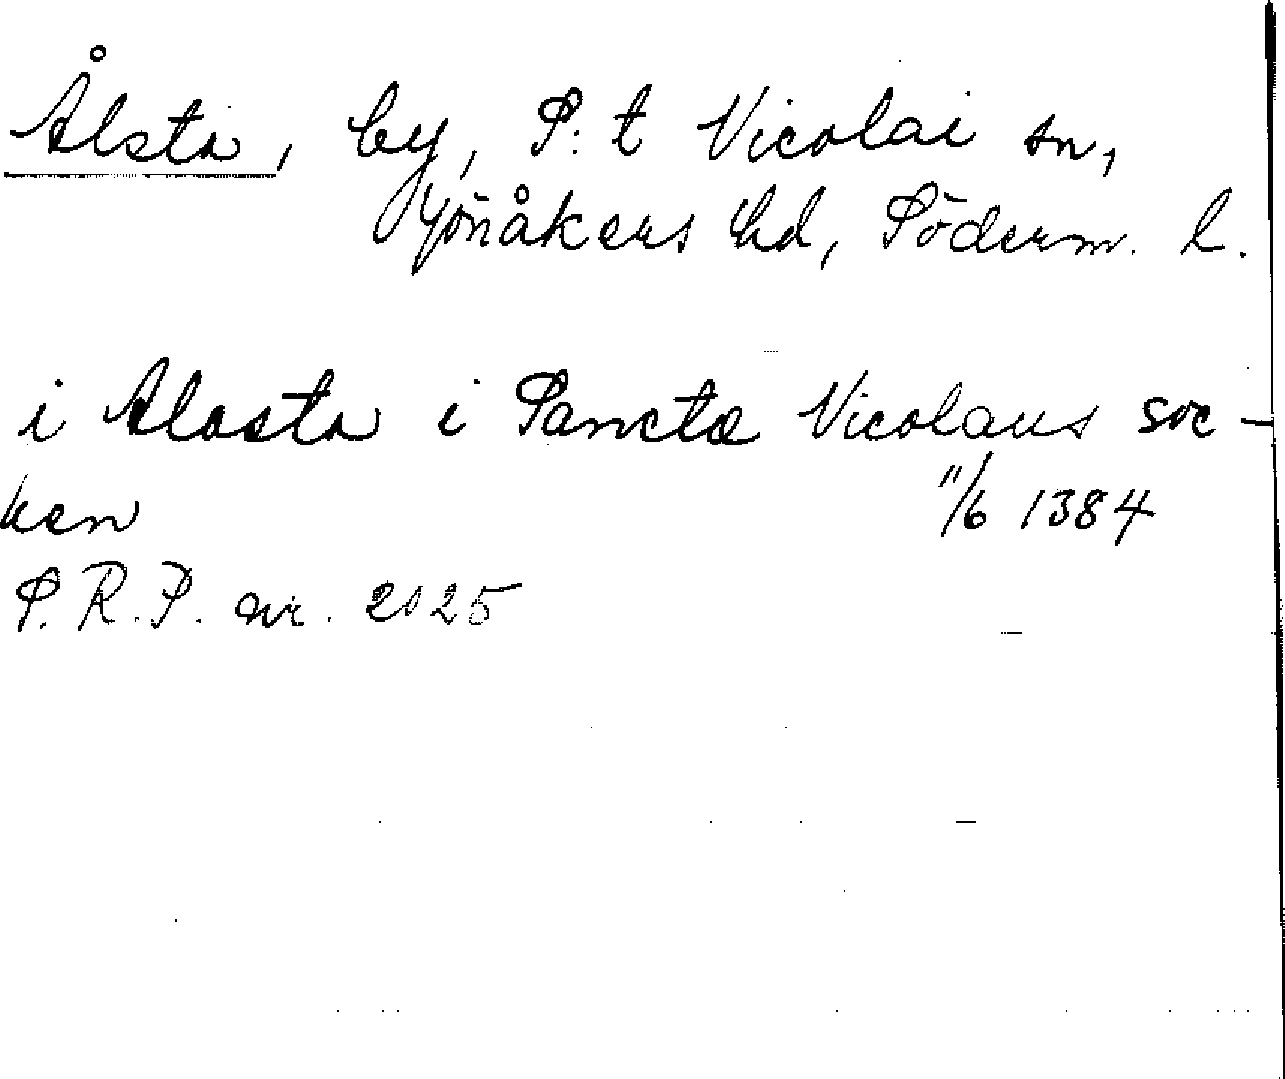 Ålsta, by, S:t Nicolai sn,
Jönåkers hd, Söderm. l.
i Alasta i Sancta Nicolaus soc-
ken 11/6 1384
S.R.P. nr. 2025